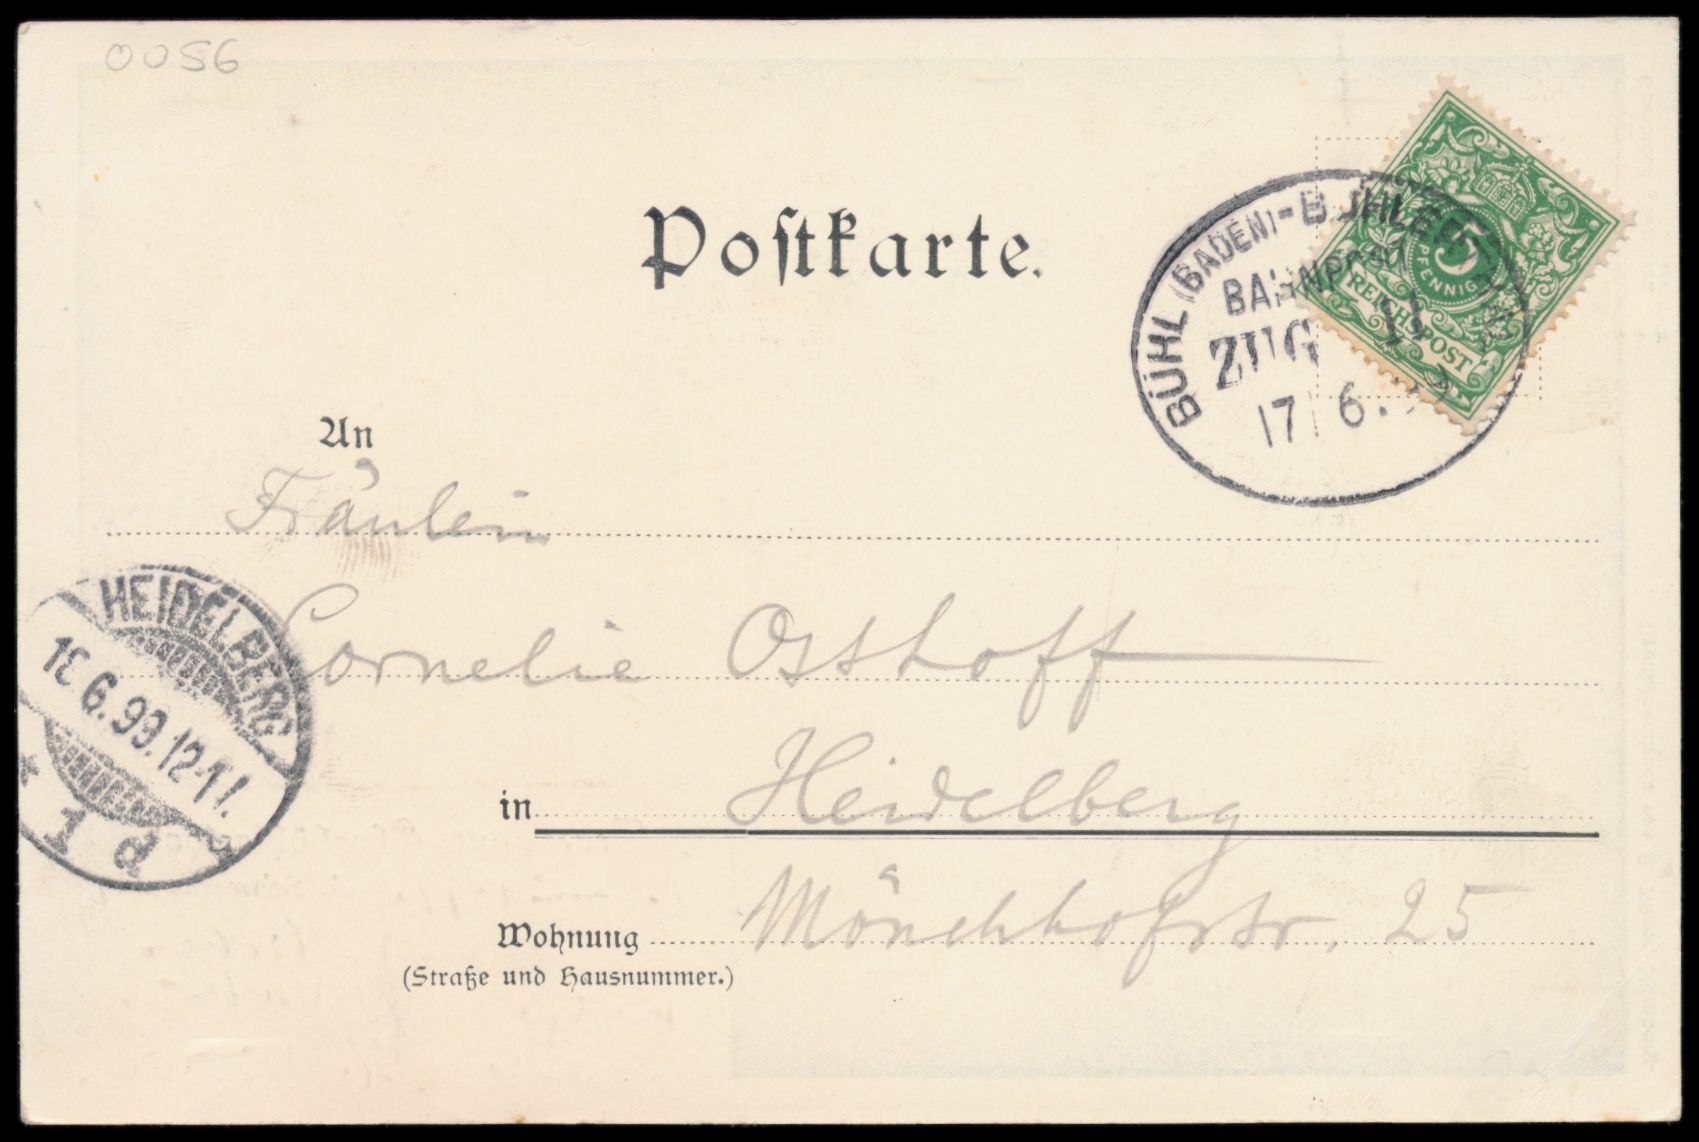 0056
Postkarte.
BÜHL (BADEN)-BÜHLERTHAL
BAHNPOST
ZUG 11
17 6.
5
PFENNIG
REICHSPOST
An
Fräulein
Cornelie Osthoff
HEIDELBERG
6.99.12-1
* 1 d
in Heidelberg
Wohnung Mönchhofstr. 25
(Straße und Hausnummer.)